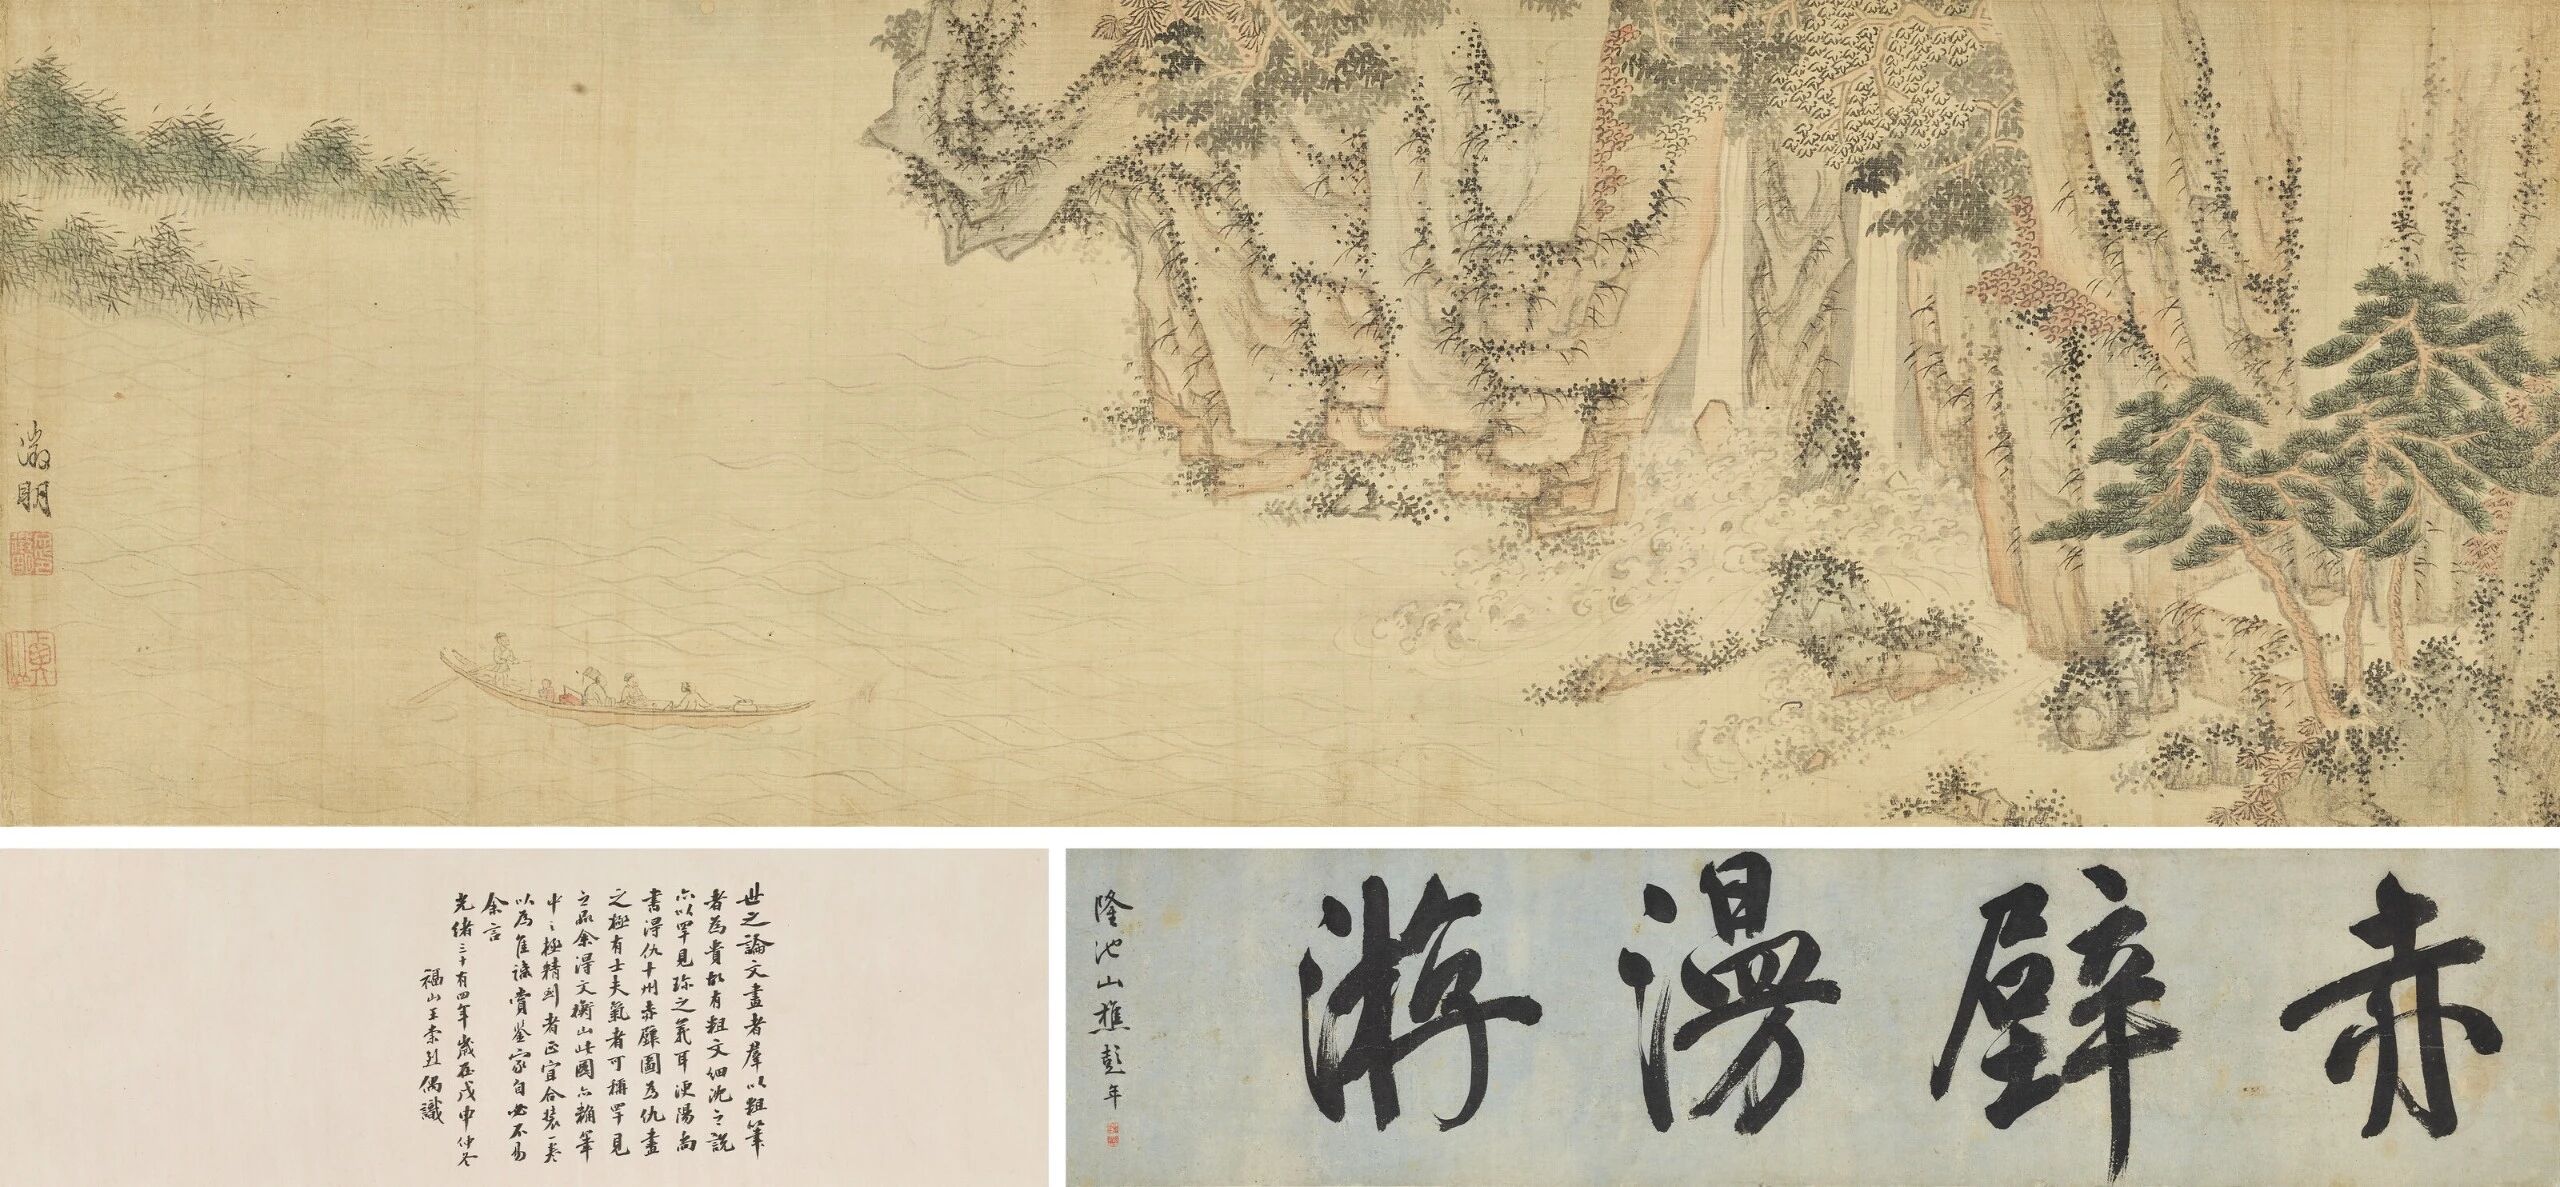 徵明
赤壁漫游
隆池山樵彭年
世之論文畫者羣以粗筆
者為貴故有粗文細沈之說
亦以罕見珍之義耳溧陽尚
書得仇十州赤壁圖為仇畫
之極有士夫氣者可稱罕見
之品余得文衡山此圖亦粗筆
中之極精到者正宜合裝一卷
以為
賞鑒家自必不易
余言
光緒三十有四年歲在戊申仲冬
福山王崇烈偶識